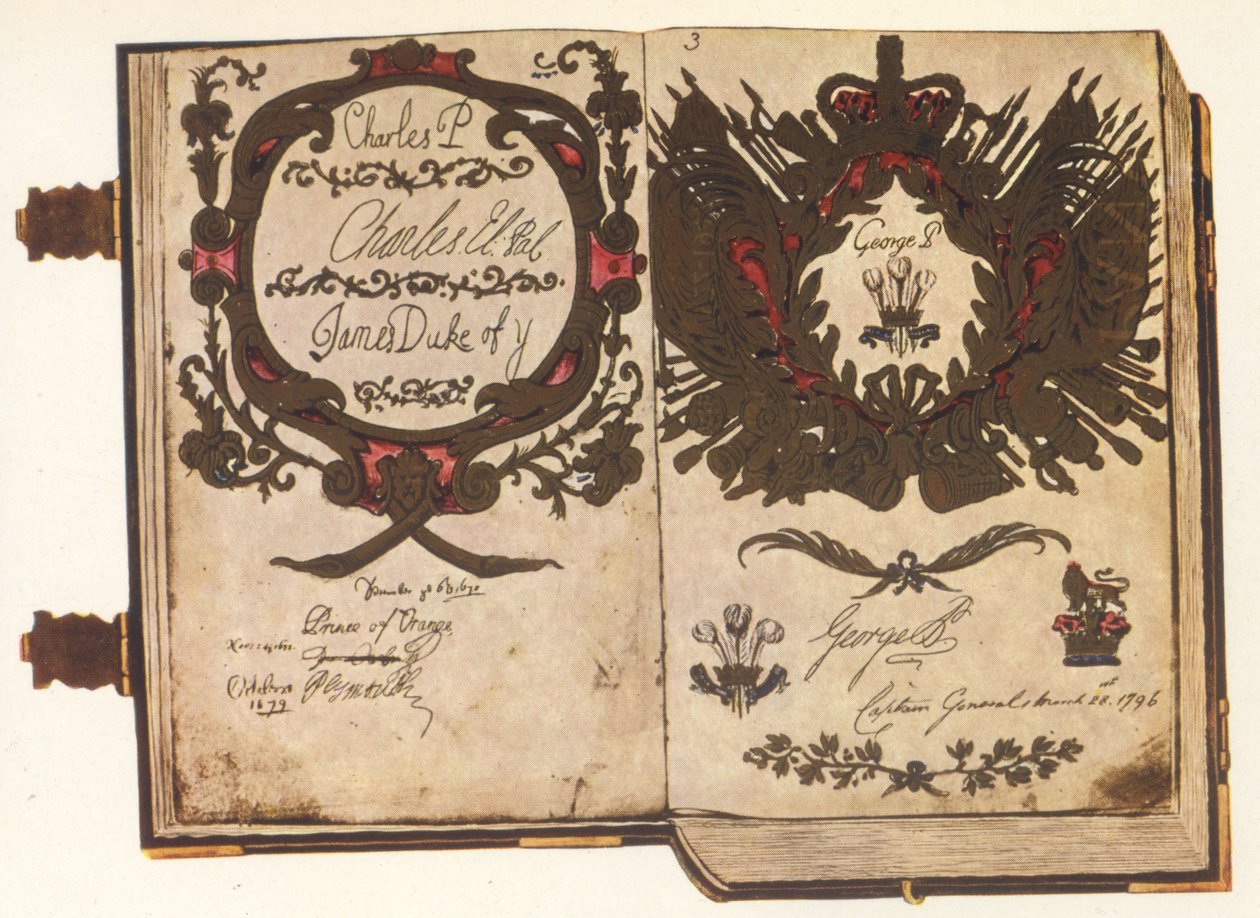 Charles P
Charles. El: Pal
James Duke of y
ye 6th 1670
Prince of Orange
October
1679 Plymouth
3
George P
George P
Captain General March 28. 1796